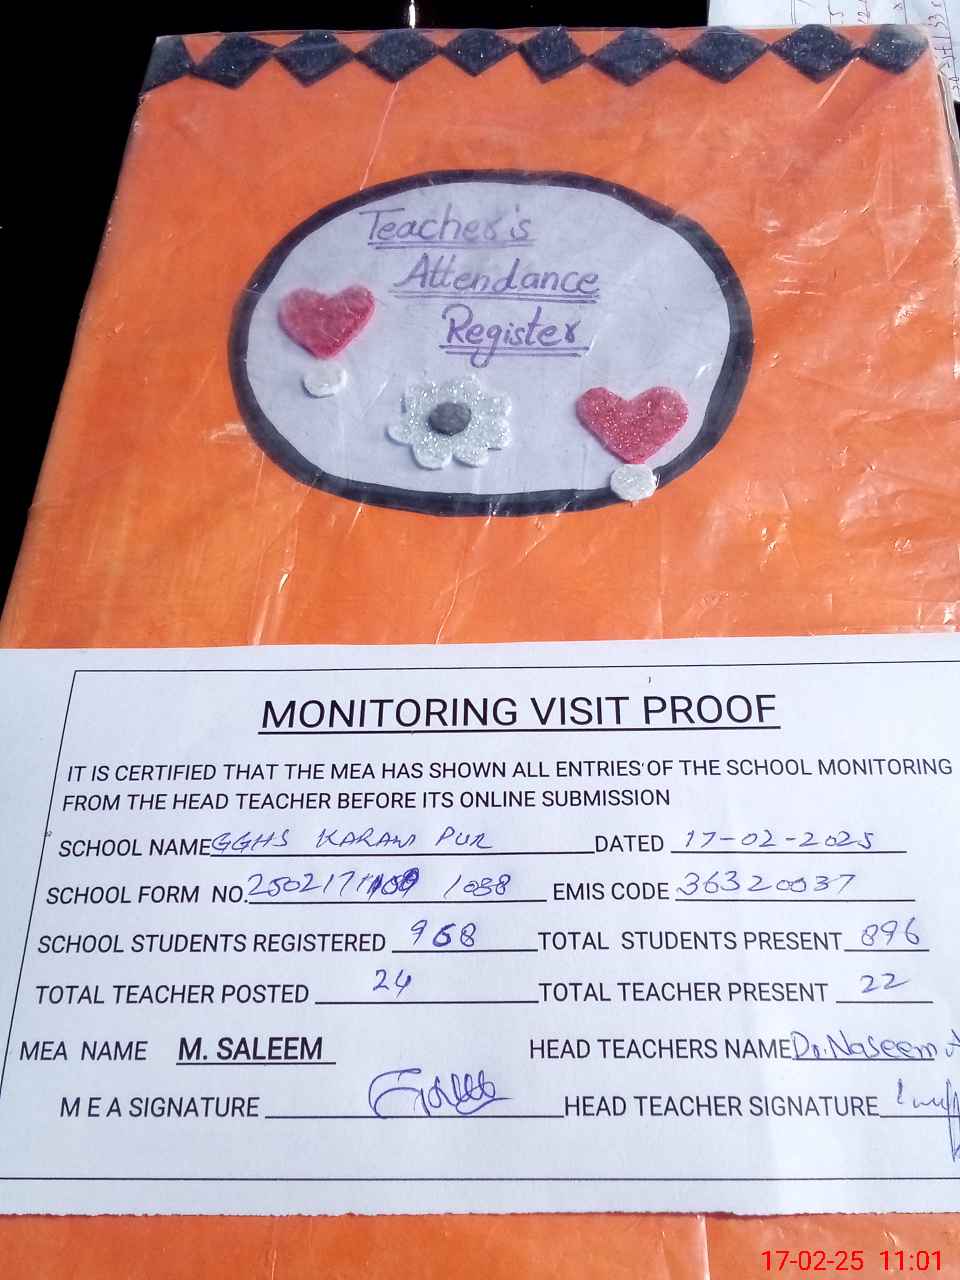 Teacher's
Attendance
Register
MONITORING VISIT PROOF
IT IS CERTIFIED THAT THE MEA HAS SHOWN ALL ENTRIES OF THE SCHOOL MONITORING
FROM THE HEAD TEACHER BEFORE ITS ONLINE SUBMISSION
SCHOOL NAME GGHS KARAM PUR DATED 17-02-2025
SCHOOL FORM NO. 1088 EMIS CODE 36320037
SCHOOL STUDENTS REGISTERED 968 TOTAL STUDENTS PRESENT 896
TOTAL TEACHER POSTED 24 TOTAL TEACHER PRESENT 22
MEA NAME M. SALEEM HEAD TEACHERS NAME Dr. Naseem
M E A SIGNATURE HEAD TEACHER SIGNATURE
17-02-25 11:01